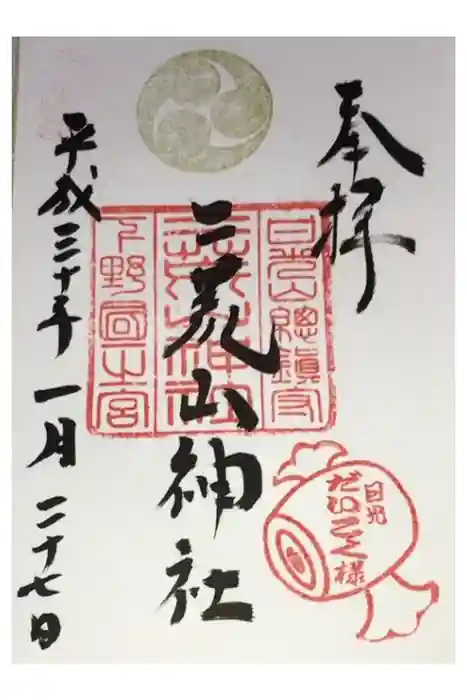 奉拝
日光山總鎮守
二荒山神社
二荒山神社
下野國一之宮
平成三十年
一月
二十七日
日光
だいこく様